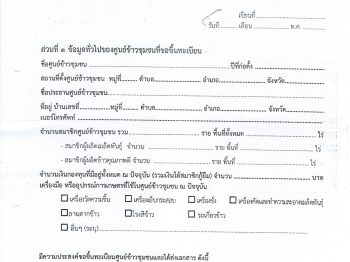 เขียนที่........................
วันที่........ เดือน ............ พ.ศ. .......
ส่วนที่ ๑ ข้อมูลทั่วไปของศูนย์ข้าวชุมชนที่ขอขึ้นทะเบียน
ชื่อศูนย์ข้าวชุมชน ........................ ปีที่ก่อตั้ง ............
สถานที่ตั้งศูนย์ข้าวชุมชน หมู่ที่........ ตำบล............ อำเภอ............ จังหวัด............
ชื่อประธานศูนย์ข้าวชุมชน........................
ที่อยู่ บ้านเลขที่............หมู่ที่............ ตำบล............ อำเภอ............ จังหวัด............
เบอร์โทรศัพท์ ........................
จำนวนสมาชิกศูนย์ข้าวชุมชน รวม............ ราย พื้นที่ทั้งหมด ............ ไร่
- สมาชิกผู้ผลิตเมล็ดพันธุ์ จำนวน ............ ราย พื้นที่ ............ ไร่
- สมาชิกผู้ผลิตข้าวคุณภาพดี จำนวน ............ ราย พื้นที่ ............ ไร่
จำนวนเงินกองทุนที่มีอยู่ทั้งหมด ณ ปัจจุบัน (รวมเงินให้สมาชิกกู้ยืม) จำนวน ............ บาท
เครื่องมือ หรืออุปกรณ์การเกษตรที่ใช้ในศูนย์ข้าวชุมชน ณ ปัจจุบัน
☐ เครื่องวัดความชื้น ☐ เครื่องเย็บกระสอบ ☐ เครื่องชั่ง ☐ เครื่องคัดและทำความสะอาดเมล็ดพันธุ์
☐ ลานตากข้าว ☐ โรงสีข้าว ☐ รถเกี่ยวข้าว
☐ อื่นๆ (ระบุ)........................
มีความประสงค์ขอขึ้นทะเบียนศูนย์ข้าวชุมชนและได้ส่งเอกสาร ดังนี้